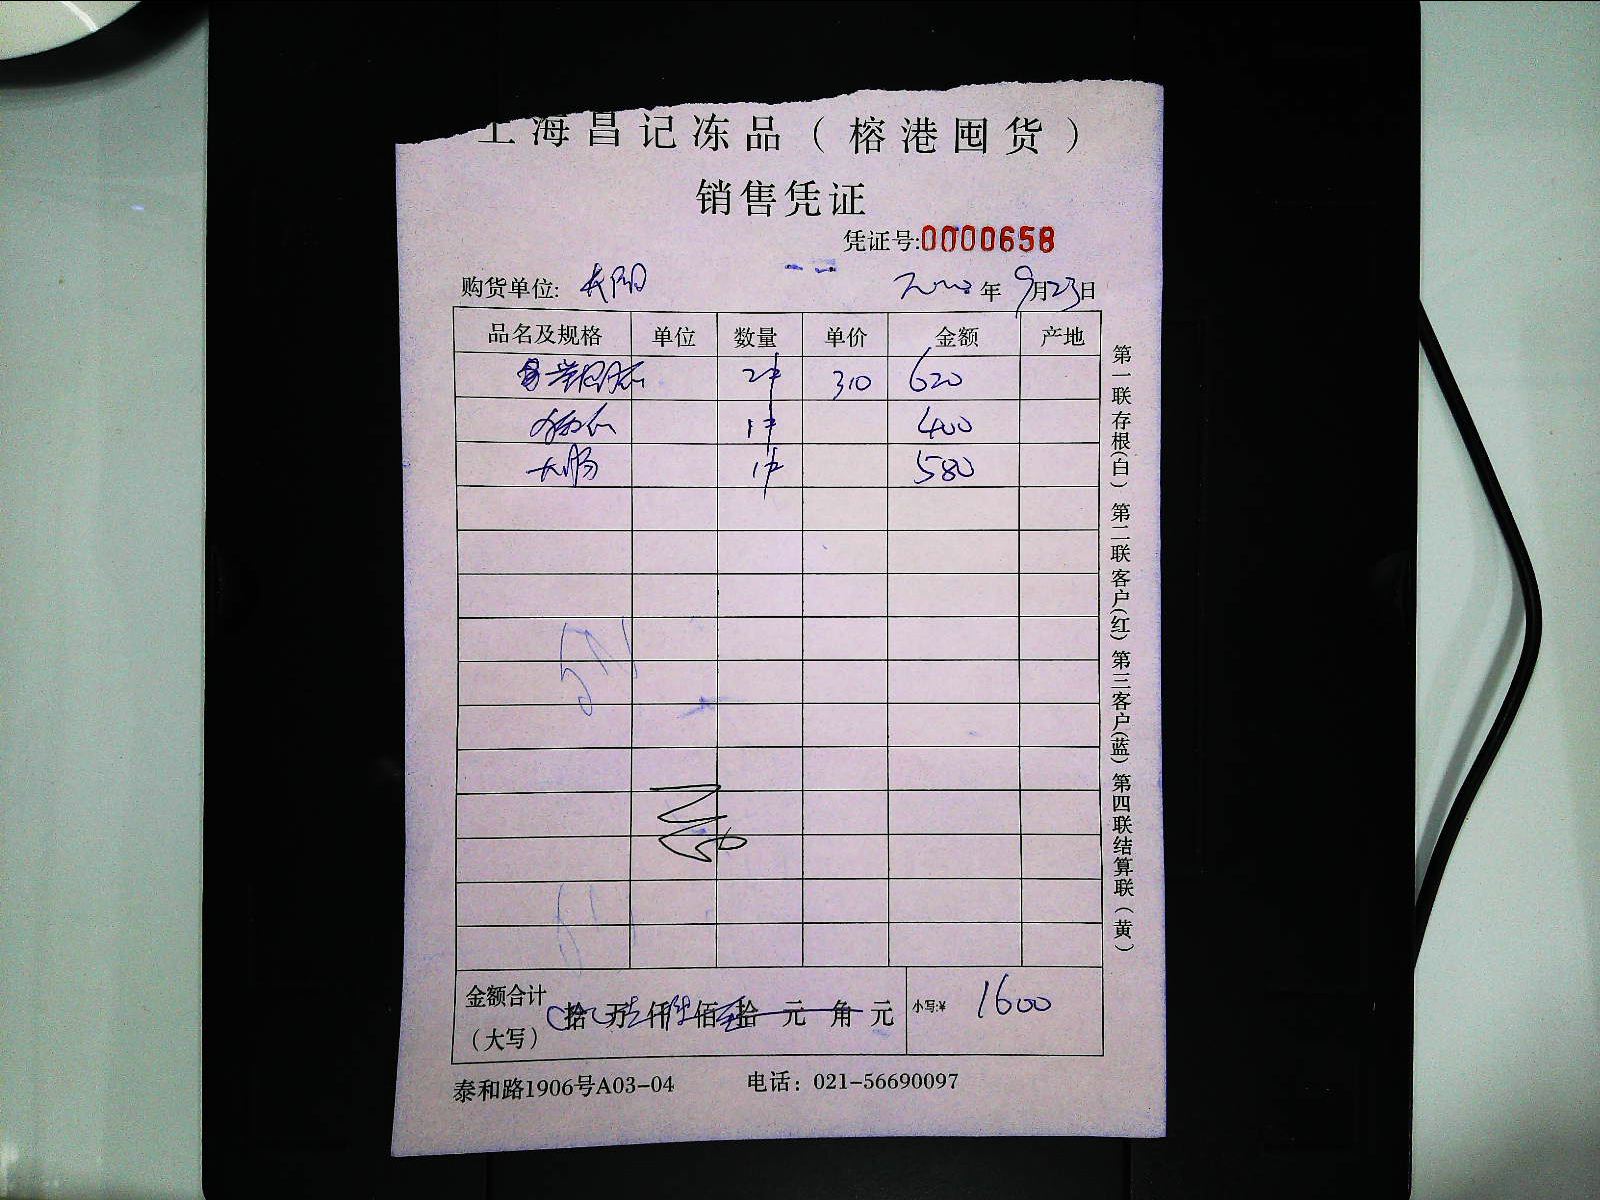 上海昌记冻品（榕港囤货）
销售凭证
凭证号:0000658
购货单位: 长阳 年 9月23日
品名及规格 单位 数量 单价 金额 产地
2件 310 620
1件 400
大肠 1件 580
金额合计（大写） 拾 万 仟 佰 拾 元 角 元 小写:¥ 1600
泰和路1906号A03-04 电话：021-56690097
第一联存根(白) 第二联客户(红) 第三客户(蓝) 第四联结算联（黄）